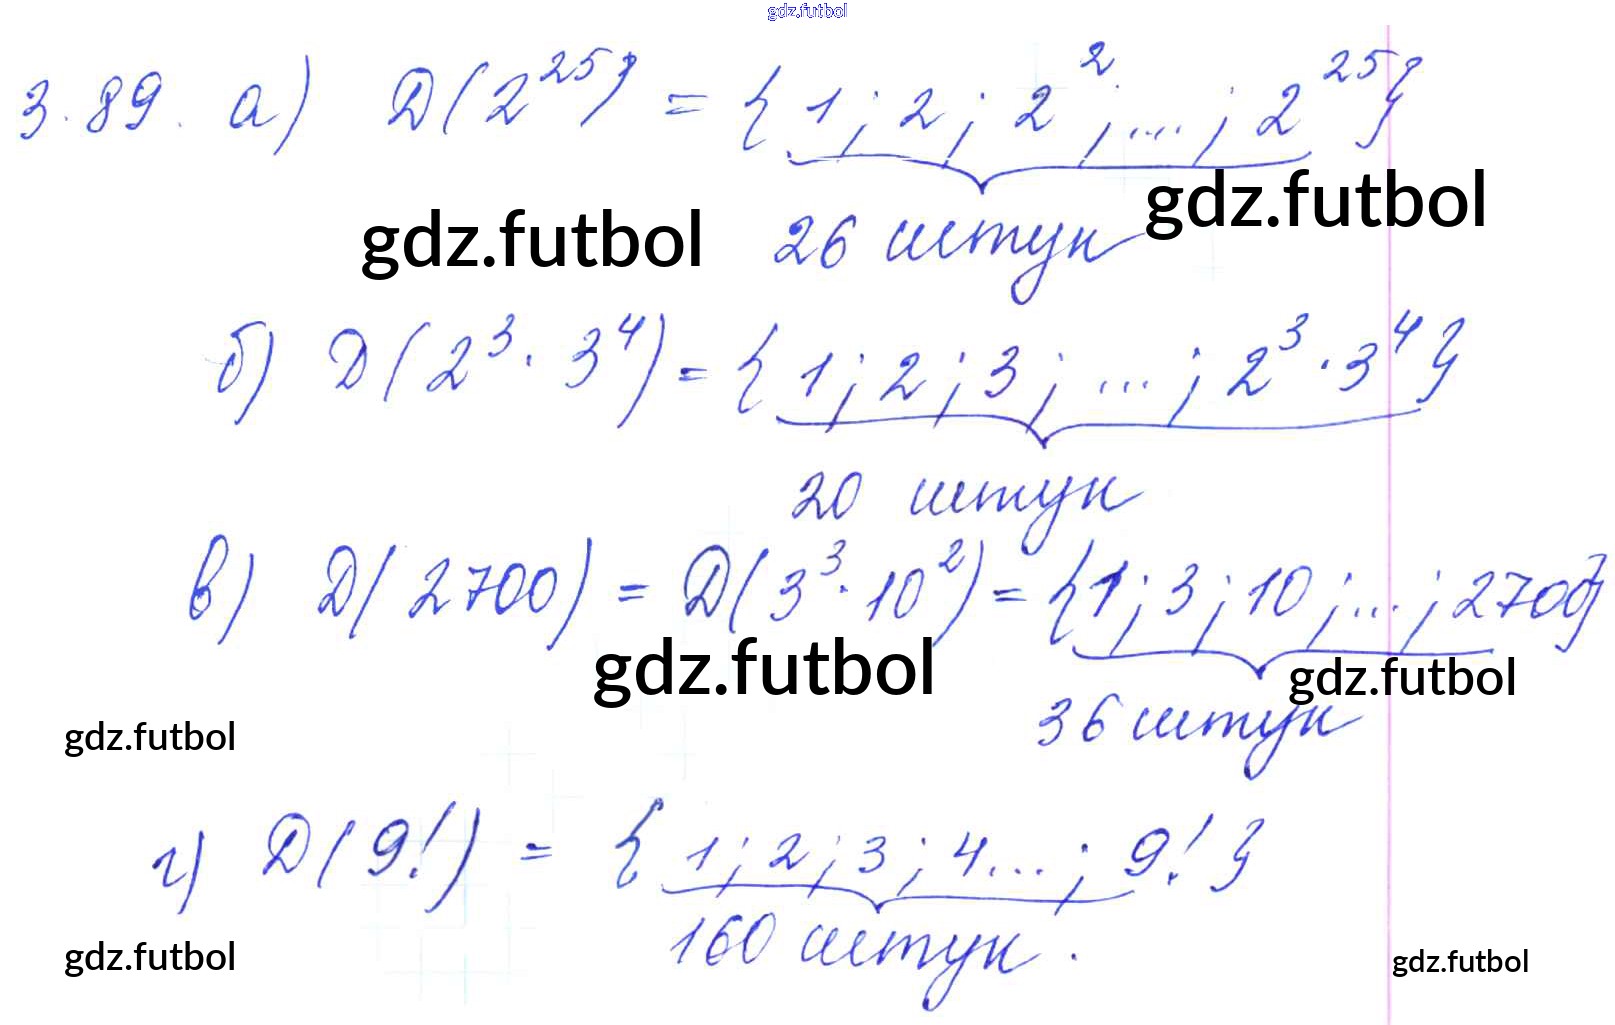 gdz.futbol
3.89. а) D(2^25) = {1; 2; 2^2; ...; 2^25}
gdz.futbol
gdz.futbol 26 штук
б) D(2^3 · 3^4) = {1; 2; 3; ...; 2^3 · 3^4}
20 штук
в) D(2700) = D(3^3 · 10^2) = {1; 3; 10; ...; 2700}
gdz.futbol gdz.futbol
36 штук
gdz.futbol
г) D(9!) = {1; 2; 3; 4...; 9!}
160 штук.
gdz.futbol gdz.futbol